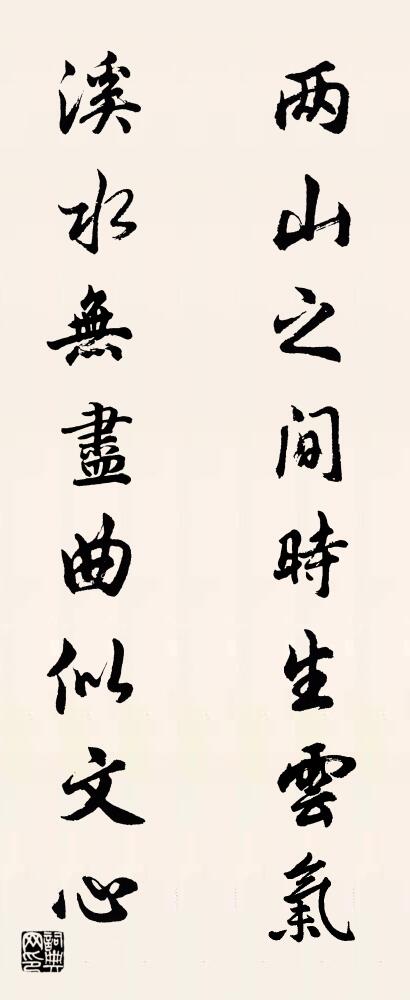 两山之间時生雲氣
溪水無盡曲似文心
詞典網印